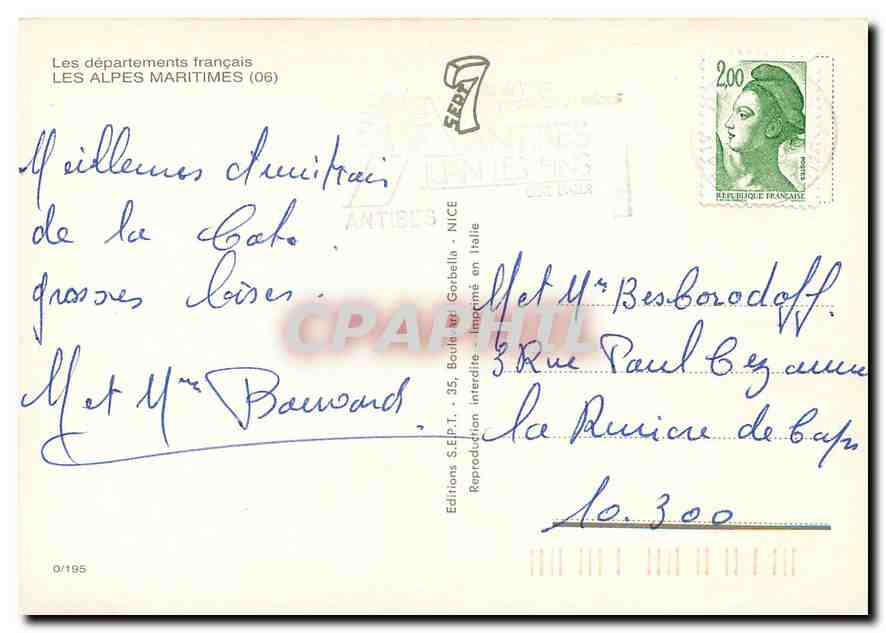 Les départements français
LES ALPES MARITIMES (06)
SEPT
7
2,00
POSTES
REPUBLIQUE FRANÇAISE
JUAN LES PINS
ANTIBES
Meilleures
de la
grosses bises.
M et Mme
Editions S.E.P.T. - 35, Boulevard Gorbella - NICE
Reproduction interdite - Imprimé en Italie
M et Mme Besborodoff.
3 Rue Paul Cezanne
la Rivière de Corps
10.300
CPAPHIL
0/195